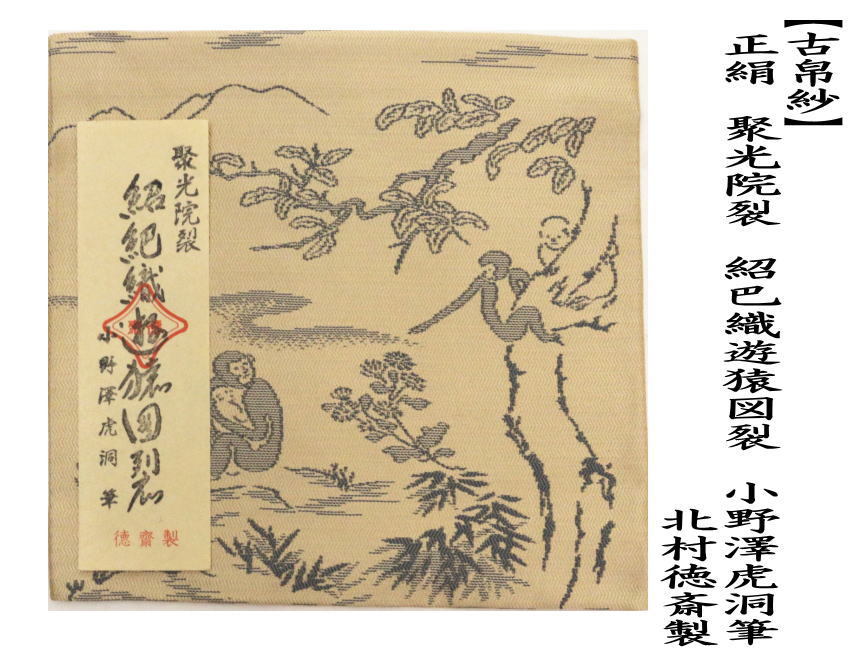 【古帛紗】
正絹　聚光院裂　紹巴織遊猿図裂　小野澤虎洞筆
北村徳斎製
聚光院裂
紹紦織遊猿図裂
小野澤虎洞筆
徳齋製